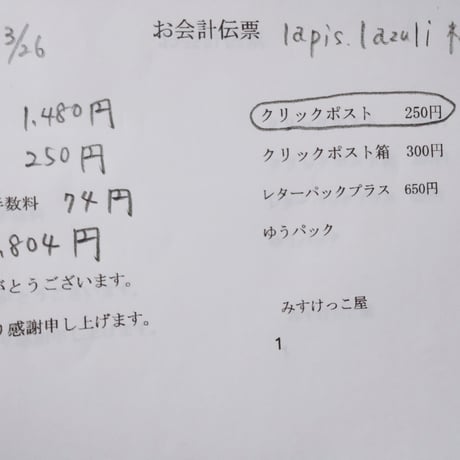 3/26
お会計伝票 lapis.lazuli
1,480円
250円
手数料 74円
,804円
がとうございます。
り感謝申し上げます。
クリックポスト 250円
クリックポスト箱 300円
レターパックプラス 650円
ゆうパック
みすけっこ屋
1